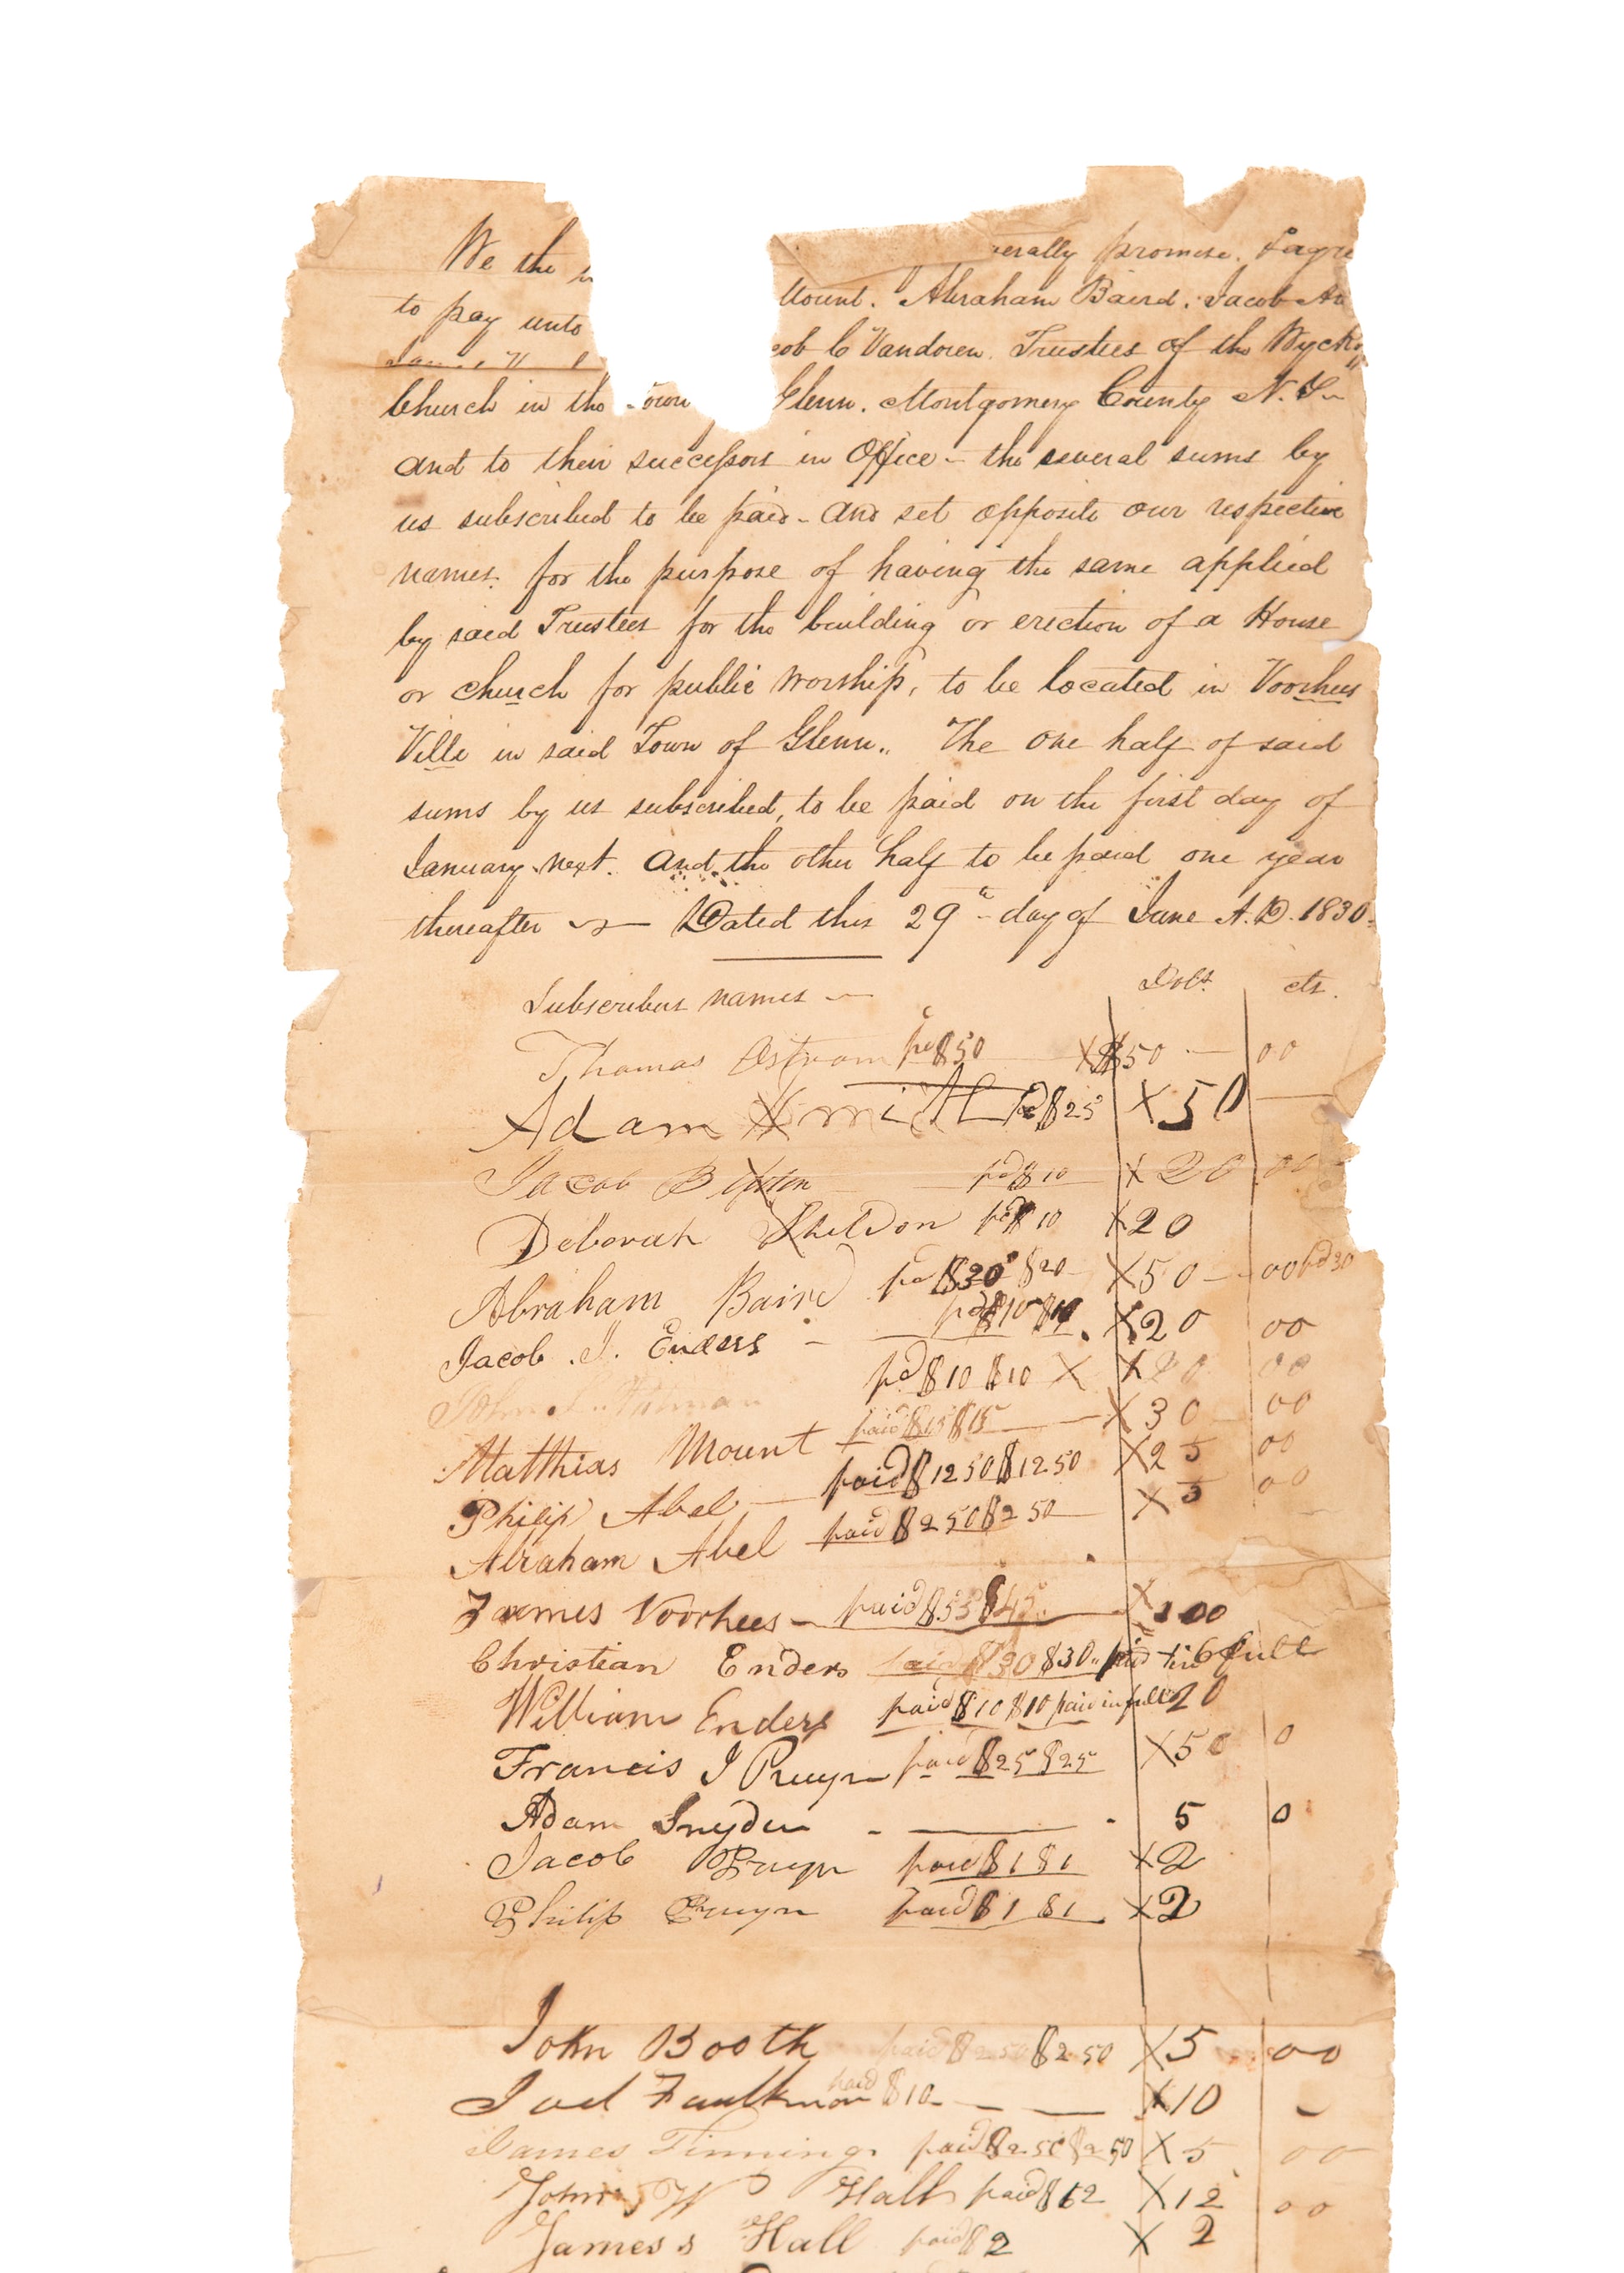 We the
erally promise. & agre
to pay unto Mount. Abraham Baird. Jacob
cob C Vandoren. Trustees of the Wycko
Church in the Town Glenn. Montgomery County N.Y-
and to their successors in Office - the several sums by
us subscribed to be paid - and set opposite our respective
names. for the purpose of having the same applied
by said Trustees for the building or erection of a House
or church for public worship, to be located in Voorhees
Ville in said Town of Glenn.. The one half of said
sums by us subscribed, to be paid on the first day of
January next. and the other half to be paid one year
thereafter — Dated this 29th day of June A.D. 1830.
Subscribers names — Dols. cts.
Thomas Ostrom pd $50 X $50 00
Adam Smith pd $25 X 50
Jacob B pd $10 X 20 00
Deborah Sheldon pd $10 X 20
Abraham Baird pd $30 $20 X 50 - 00 pd 30
Jacob J. Enders pd $10 $10 X 20 00
John pd $10 $10 X X 20 00
Matthias Mount paid $15 $15 X 30 00
Philip Abel paid $12 50 $12 50 X 25 00
Abraham Abel paid $2 50 $2 50 X 5 00
James Voorhees - paid $55 $45 X 100
Christian Enders paid $30 $30 paid in full
William Enders paid $10 $10 paid in full 20
Francis J Pruyn paid $25 $25 X 50 0
Adam Snyder 5 0
Jacob Pruyn paid $1 $1 X 2
Philip Pruyn paid $1 $1 X 2
John Booth paid $2 50 $2 50 X 5 00
Joel Faulknor paid $10 - X 10 -
James Tinning paid $2 50 $2 50 X 5 00
John W Hall paid $12 X 12 00
James s Hall paid $2 X 2